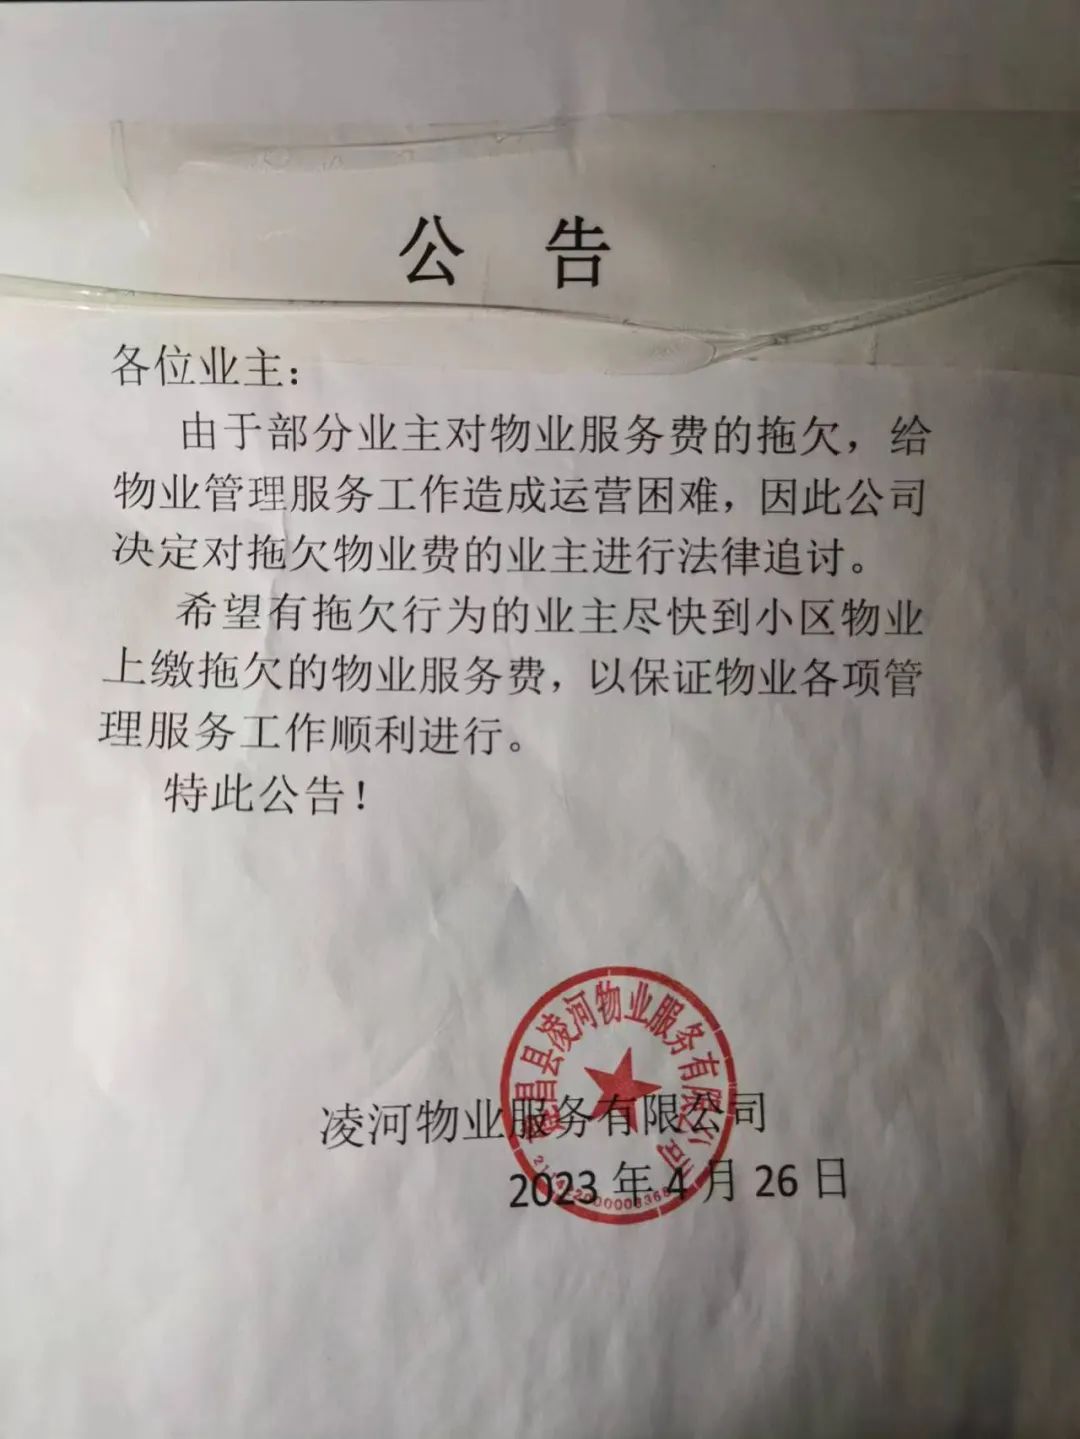 公 告
各位业主：
由于部分业主对物业服务费的拖欠，给
物业管理服务工作造成运营困难，因此公司
决定对拖欠物业费的业主进行法律追讨。
希望有拖欠行为的业主尽快到小区物业
上缴拖欠的物业服务费，以保证物业各项管
理服务工作顺利进行。
特此公告！
昌县凌河物业服务有限公司
凌河物业服务有限公司
2023 年 4 月 26 日